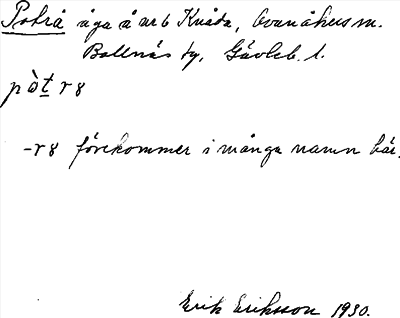 Potrå äga å nr 6 Knåda, Ovanåkers sn.
Bollnäs tg, Gävleb. l.
pòt r 8
-r 8 förekommer i många namn här.
Erik Eriksson 1930.